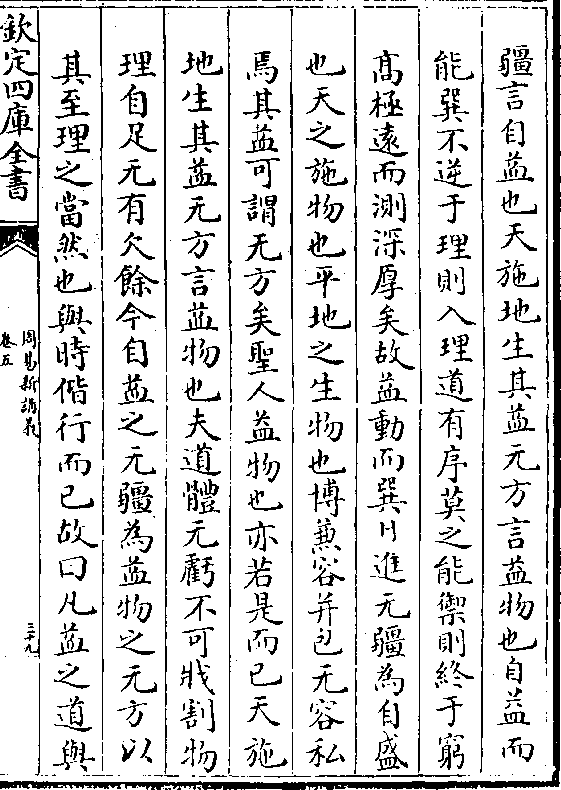 疆言自益也天施地生其益无方言益物也自益而
能巽不逆于理則入理道有序莫之能禦則終于窮
髙極遠而測深厚矣故益動而巽日進无疆為自盛
也天之施物也平地之生物也博兼容并包无容私
焉其益可謂无方矣聖人益物也亦若是而已天施
地生其益无方言益物也夫道體无虧不可戕割物
理自足无有欠餘今自益之无疆為益物之无方以
其至理之當然也與時偕行而已故曰凡益之道與
欽定四庫全書
周易新講義
卷五
三十九